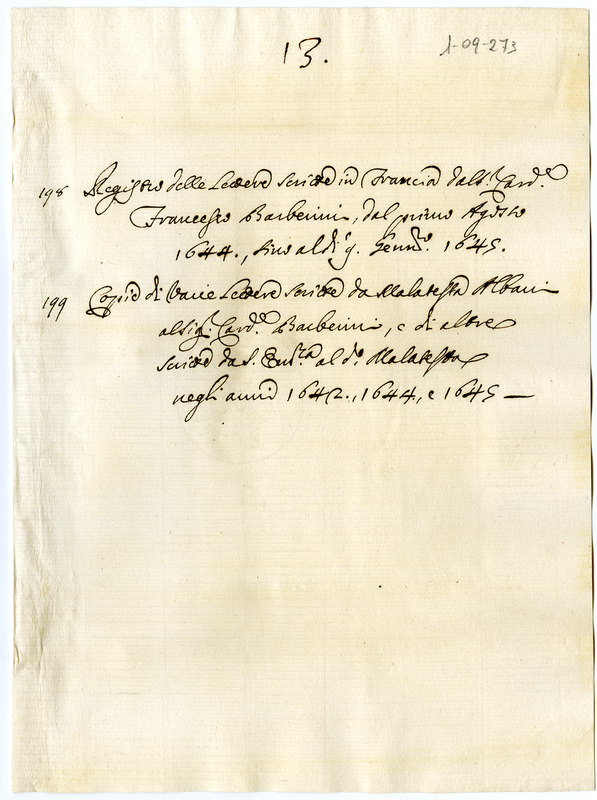 13.
1-09-273
198 Registro delle Lettere scritte in Francia dal S.r Card.e
Francesco Barberini, dal primo Agosto
1644., sino al di 9. Genn.o 1645.
199 Copie di varie Lettere scritte da Malatesta Albani
al Sig.r Card.e Barberini, e di altre
scritte da S. Em.za al d.o Malatesta
negli anni 1642., 1644, e 1645 —